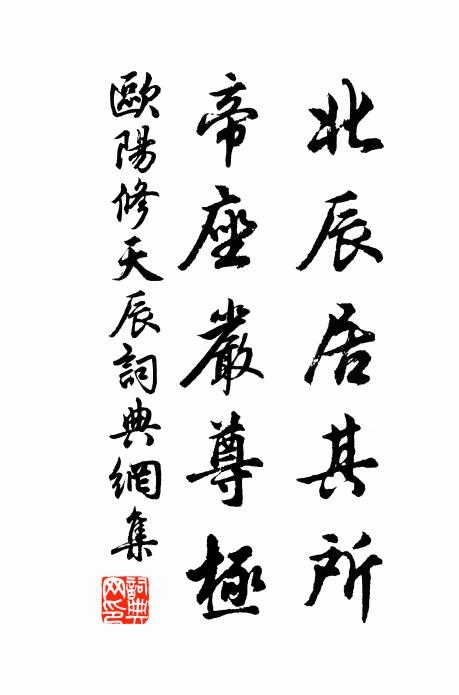 北辰居其所
帝座嚴尊極
歐陽修天辰詞典網集
詞典网印